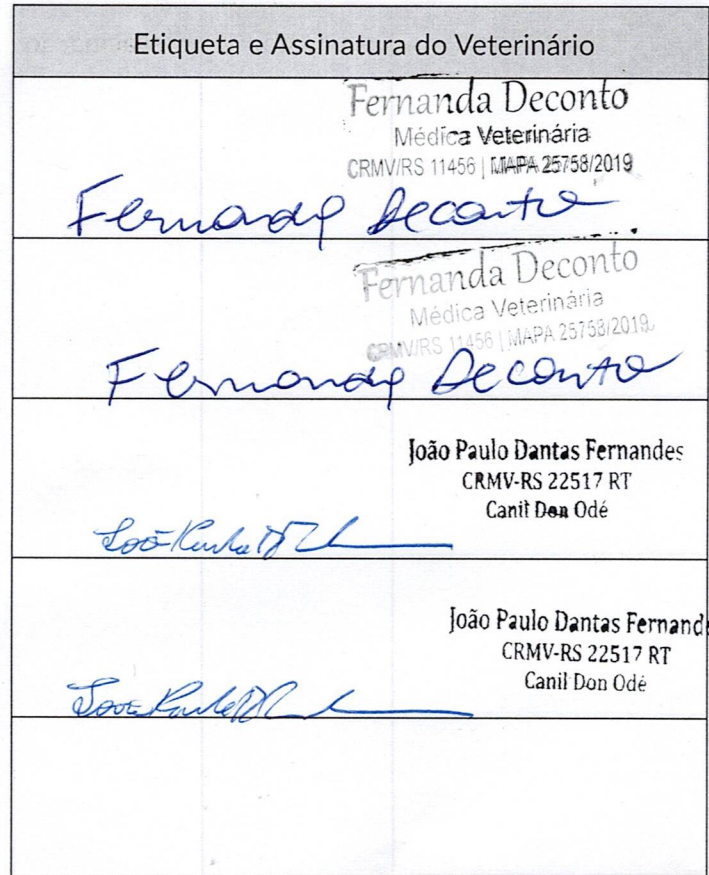 Etiqueta e Assinatura do Veterinário
Fernanda Deconto
Médica Veterinária
CRMV/RS 11456 | MAPA 25758/2019
Fernanda Deconto
Fernanda Deconto
Médica Veterinária
CRMV/RS 11456 | MAPA 25758/2019
Fernanda Deconto
João Paulo Dantas Fernandes
CRMV-RS 22517 RT
Canil Don Odé
João Paulo D
João Paulo Dantas Fernand
CRMV-RS 22517 RT
Canil Don Odé
João Paulo D